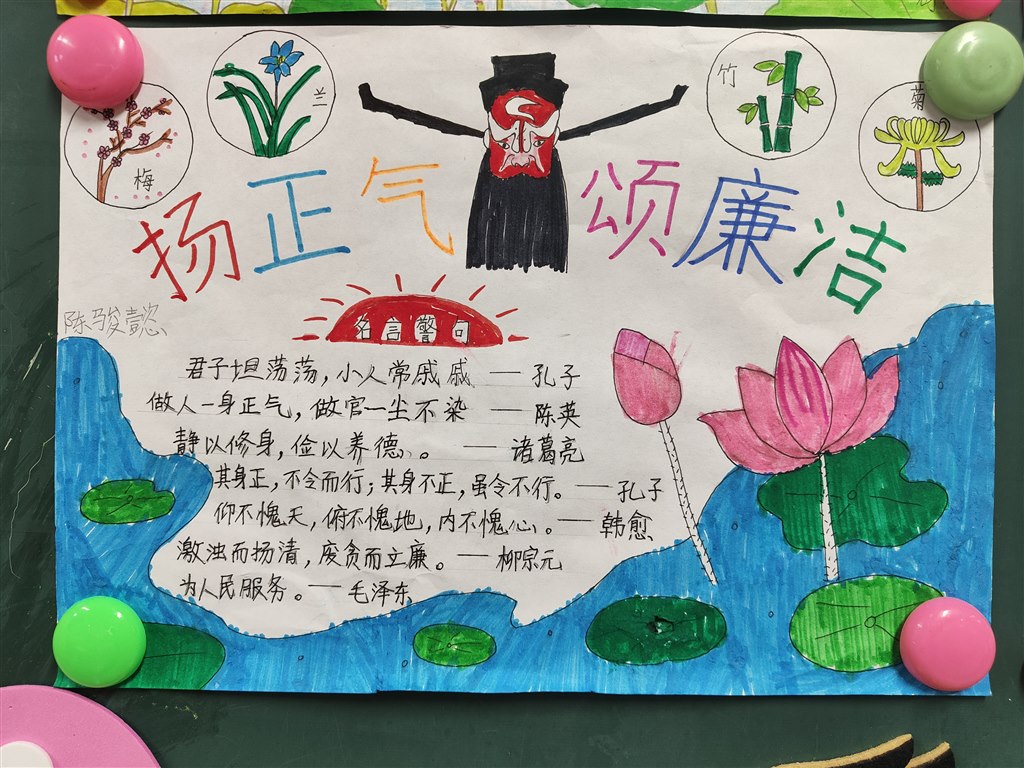 兰
竹
菊
梅
扬正气
颂廉洁
陈骏懿
名言警句
君子坦荡荡，小人常戚戚 — 孔子
做人一身正气，做官一尘不染 — 陈英
静以修身，俭以养德、。 — 诸葛亮
其身正，不令而行；其身不正，虽令不行。— 孔子
仰不愧天，俯不愧地，内不愧心。— 韩愈
激浊而扬清，废贪而立廉。— 柳宗元
为人民服务。— 毛泽东